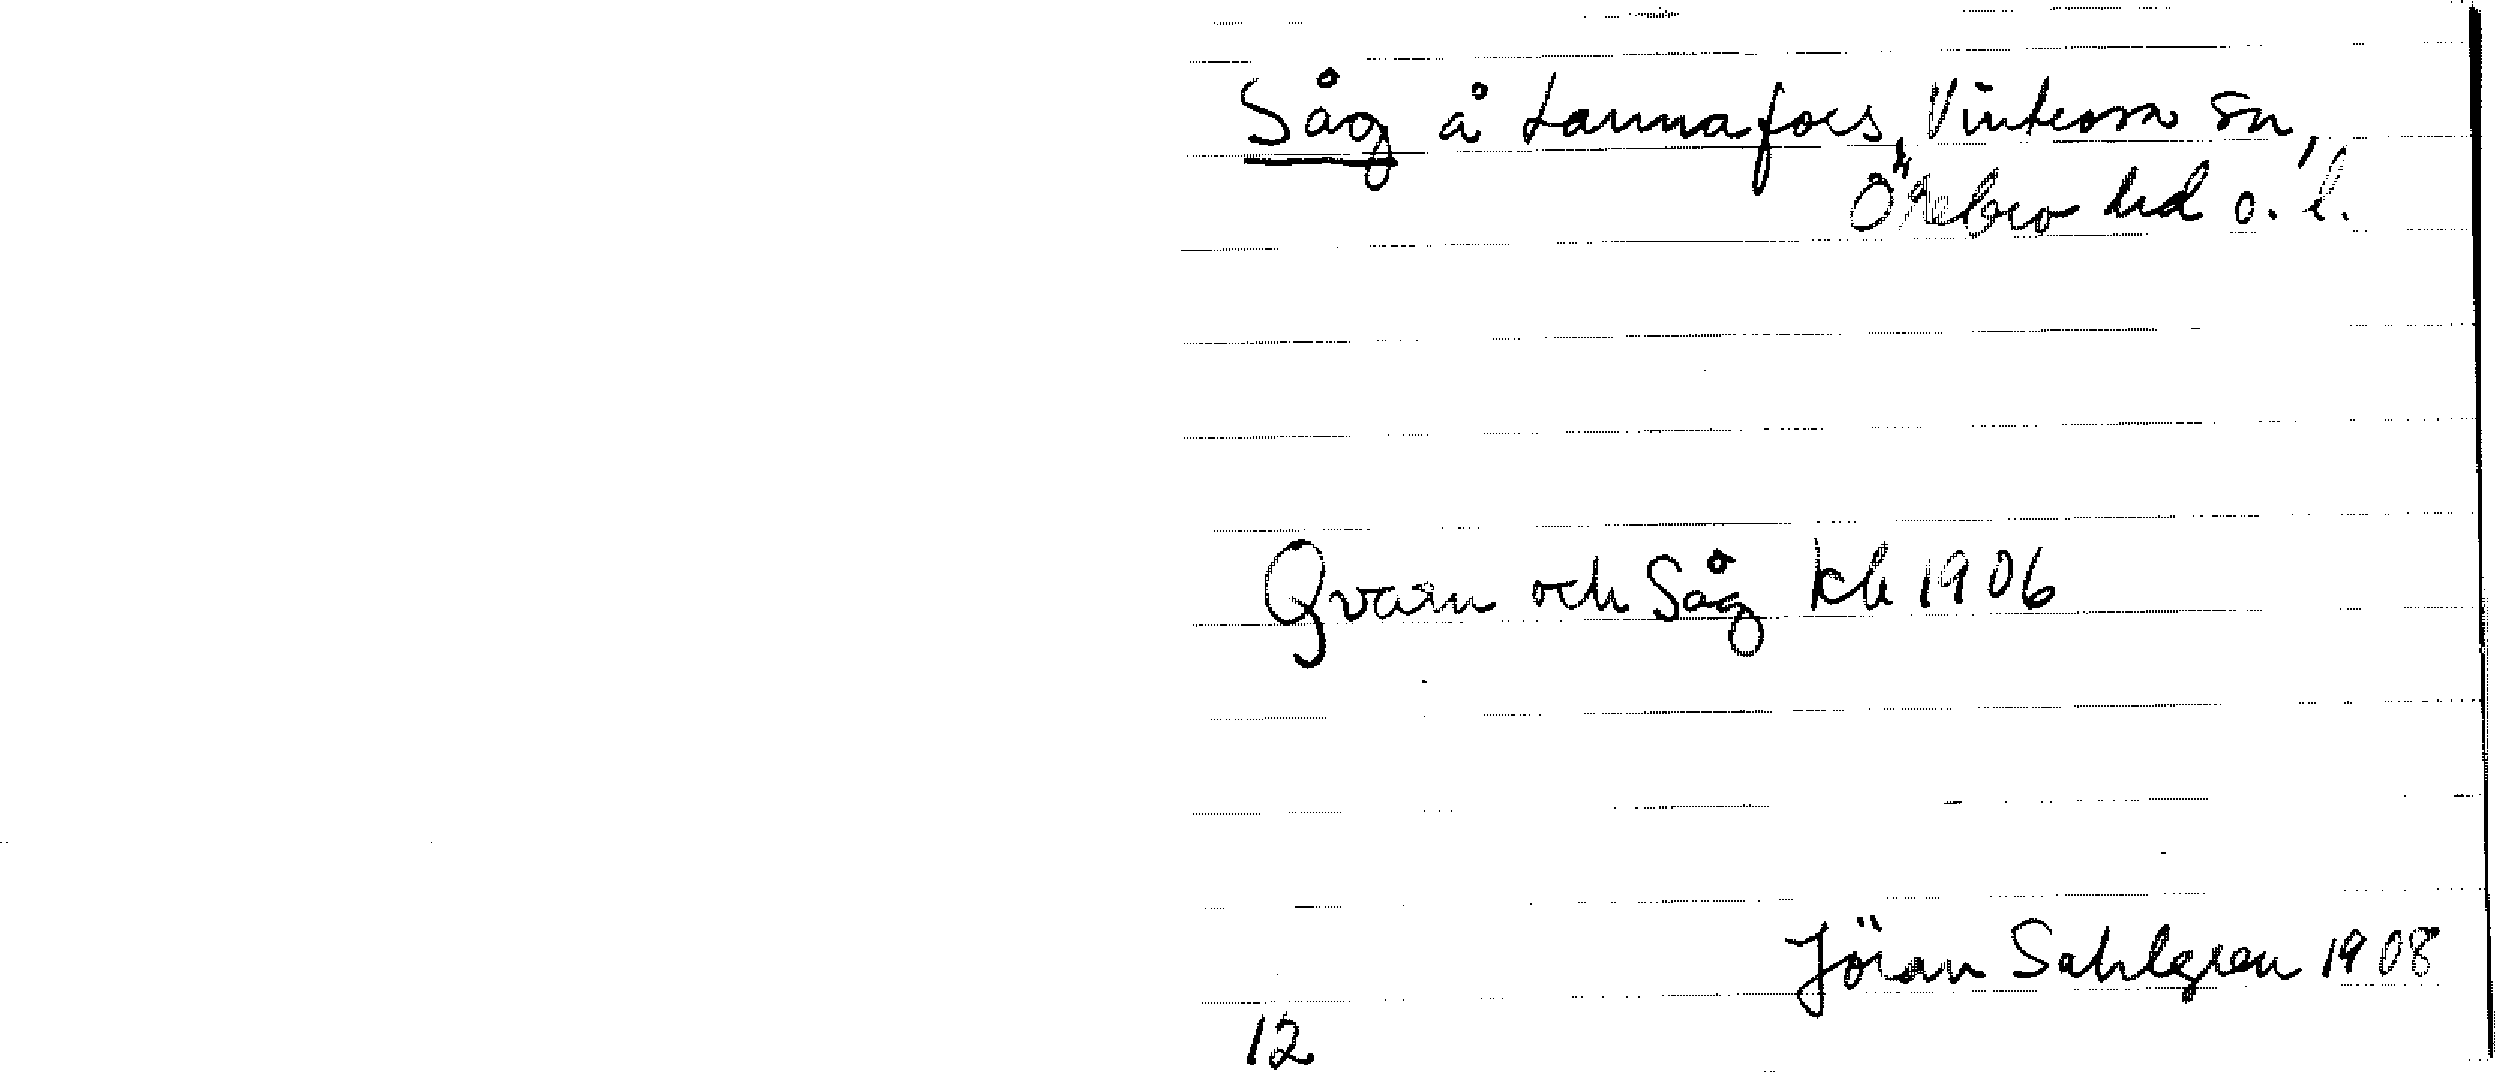 Såg å Lannafors, Vintrosa sn,
Örebro hd o. l.
Qvarn och Såg kb 1906
Jöran Sahlgren 1908
12